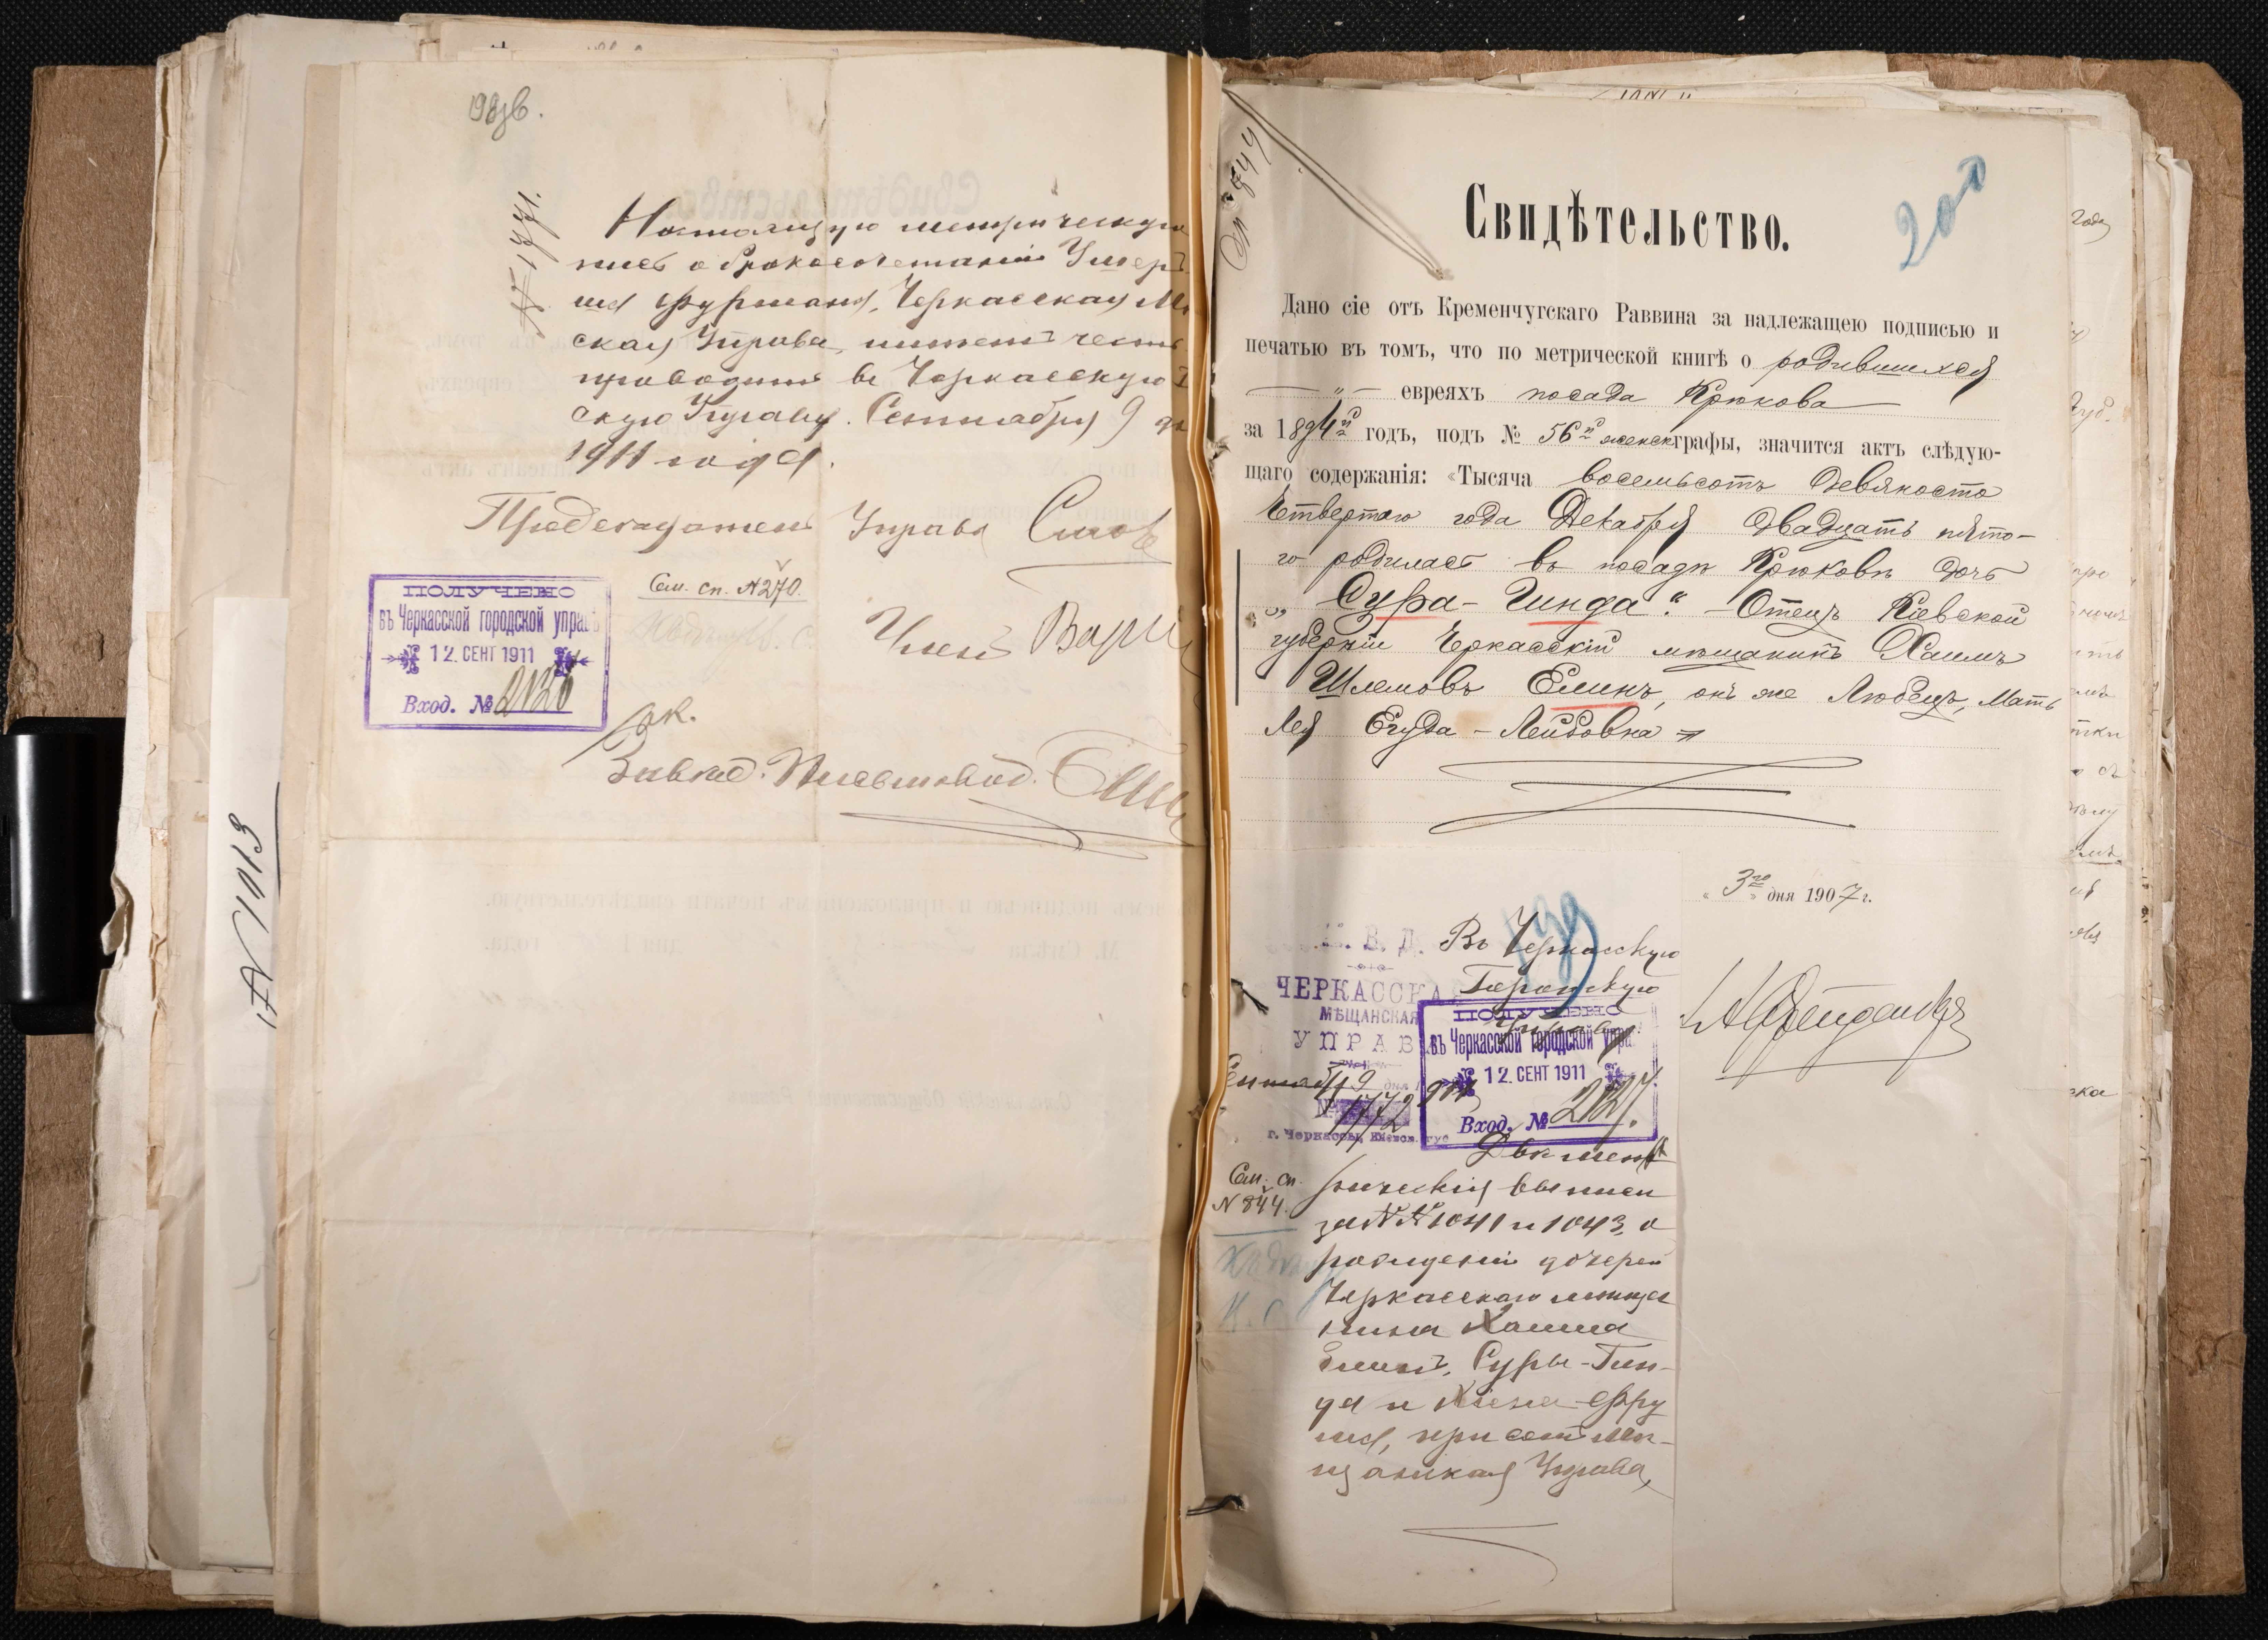 198об.
№ 1771.
Настоящую метрическую
пись о бракосочетании Ушер
ма Фурмана, Черкасская М
ская Управа, имеет честь
проводит в Черкасскую
скую Управу. Сентября 9 дн
1911 года.
Председатель Управы
См. сп. № 270.
Член
ПОЛУЧЕНО
въ Черкасской городской управѣ
12. СЕНТ 1911
Вход. № 2126
Завед. Письмовод.
№ 1013
Сп 844
200
Свидѣтельство.
Дано сіе отъ Кременчугскаго Раввина за надлежащею подписью и
печатью въ томъ, что по метрической книгѣ о родившихся
— „ — евреяхъ посада Крюкова
за 1894й годъ, подъ № 56й женск графы, значится актъ слѣдую-
щаго содержанія: «Тысяча восемьсотъ девяносто
четвертаго года Декабря двадцать пято-
го родилась въ посадѣ Крюковѣ дочь
„Сура-Гинда“. — Отецъ Кіевской
губерніи Черкасскій мѣщанинъ Хаимъ
Шлемовъ Елинъ, онъ же Любецъ, Мать
Лея Егуда-Лейбовна
„3го“ дня 1907 г.
В. Д.
ЧЕРКАССКА
МѢЩАНСКАЯ
УПРАВ
Сентяб 9 дня 1911
№ 1772
г. Черкассы, Кіевск. губ
Въ Черкасскую
Городскую
Управу.
ПОЛУЧЕНО
въ Черкасской городской упра
12. СЕНТ 1911
Вход. № 2127.
См. сп.
№ 844.
Две метри
рическія выписи
за №№ 1041 и 1043, о
рождении дочерей
Черкасскаго мѣща
нина Хаима
Елина, Суры-Гин-
ды и Хiена-Фру
ма, при семъ Мѣ-
щанская Управа,